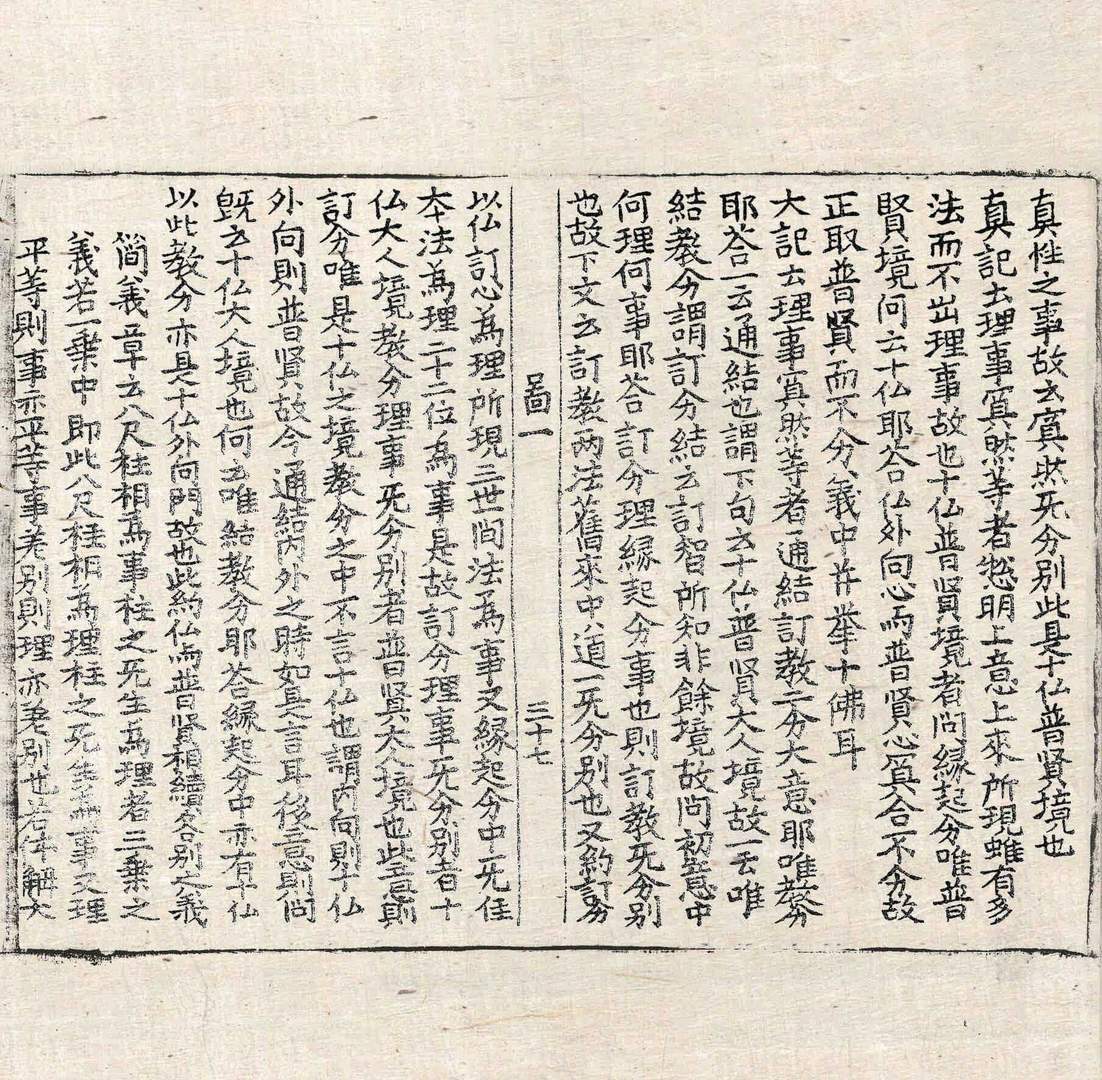 真性之事故云冥然无分別此是十仏普賢境也
真記云理事冥然等者惣明上意上來所現雖有多
法而不出理事故也十仏普賢境者問緣起分唯普
賢境何云十仏耶答仏外向心而普賢心冥合不分故
正取普賢而不分義中幷擧十佛耳
大記云理事冥然等者通結訂教二分大意耶唯教分
耶答一云通結也謂下句云十仏普賢大人境故一云唯
結教分謂訂分結云訂智所知非餘境故問初意中
何理何事耶答訂分理緣起分事也則訂教无分別
也故下文云訂教两法舊來中道一无分別也又約訂分
啚一
三十七
以仏訂心為理所現三世間法為事又緣起分中一无住
本法為理二十二位為事是故訂分理事无分別者十
仏大人境教分理事无分別者普賢大人境也此意則
訂分唯是十仏之境教分之中不言十仏也謂內向則十仏
外向則普賢故今通結內外之時如是言耳後意則問
旣云十仏大人境也何云唯結教分耶答緣起分中亦有十仏
以此教分亦是十仏外向門故也此約仏而普賢相續各別之義
簡義章云八尺柱相為事柱之无生為理者三乗之
義若一乗中即此八尺柱相為理柱之无生為事又理
平等則事亦平等事差別則理亦差別也若体解大